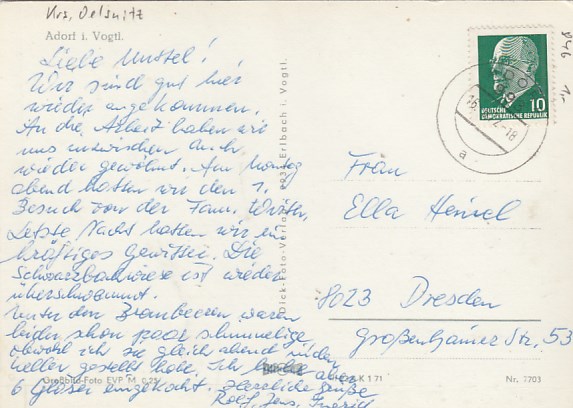 Krs. Oelsnitz
Adorf i. Vogtl.
Liebe Mussel!
Wir sind gut hier
wieder angekommen.
An die Arbeit haben wir
uns inzwischen auch
wieder gewöhnt. Am Montag
abend hatten wir den 1.
Besuch von der Fam. Wirth.
Letzte Nacht hatten wir ein
kräftiges Gewitter. Die
Schwarzbachwiese ist wieder
überschwemmt.
Unter den Brombeeren waren
leider schon paar schimmelige
obwohl ich sie gleich abend in den
Keller gestellt habe. Ich habe aber
6 Gläser eingekocht. Herzliche Grüße
Rolf, Jens, Ingrid
Großbild-Foto EVP M 0,25
Dick-Foto-Verlag, Erlbach i. Vogtl.
10
DEUTSCHE
DEMOKRATISCHE REPUBLIK
-18
a
Frau
Ella Hensel
8023 Dresden
Großenhainer Str. 53
K 1 71
Nr. 2703